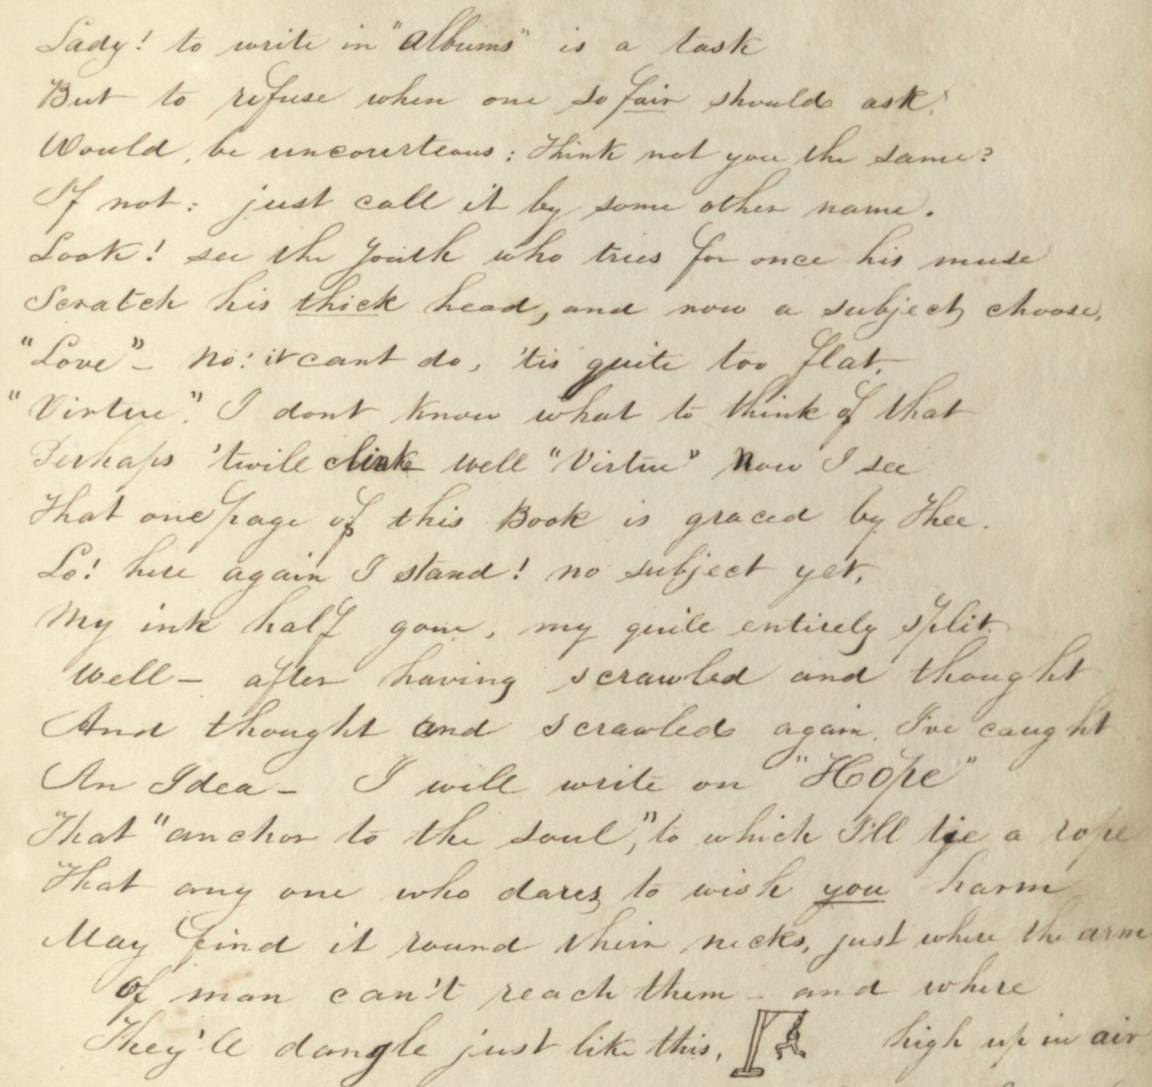 Lady! to write in "Albums" is a task
But to refuse when one so fair should ask!
Would be uncourteous: Think not you the same?
If not: just call it by some other name.
Look! see the Youth who tries for once his muse
Scratch his thick head, and now a subject choose.
"Love" - No! it cant do, 'tis quite too flat.
"Virtue". I dont know what to think of that
Perhaps 'twill clink well "Virtue" Now I see
That one page of this Book is graced by Thee.
Lo! here again I stand! no subject yet,
My ink half gone, my quill entirely split.
Well - after having scrawled and thought
And thought and scrawled again, I've caught
An Idea - I will write on "Hope"
That "anchor to the soul," to which I'll tie a rope
That any one who dares to wish you harm
May find it round their necks, just where the arm
Of man can't reach them - and where
They'll dangle just like this, high up in air